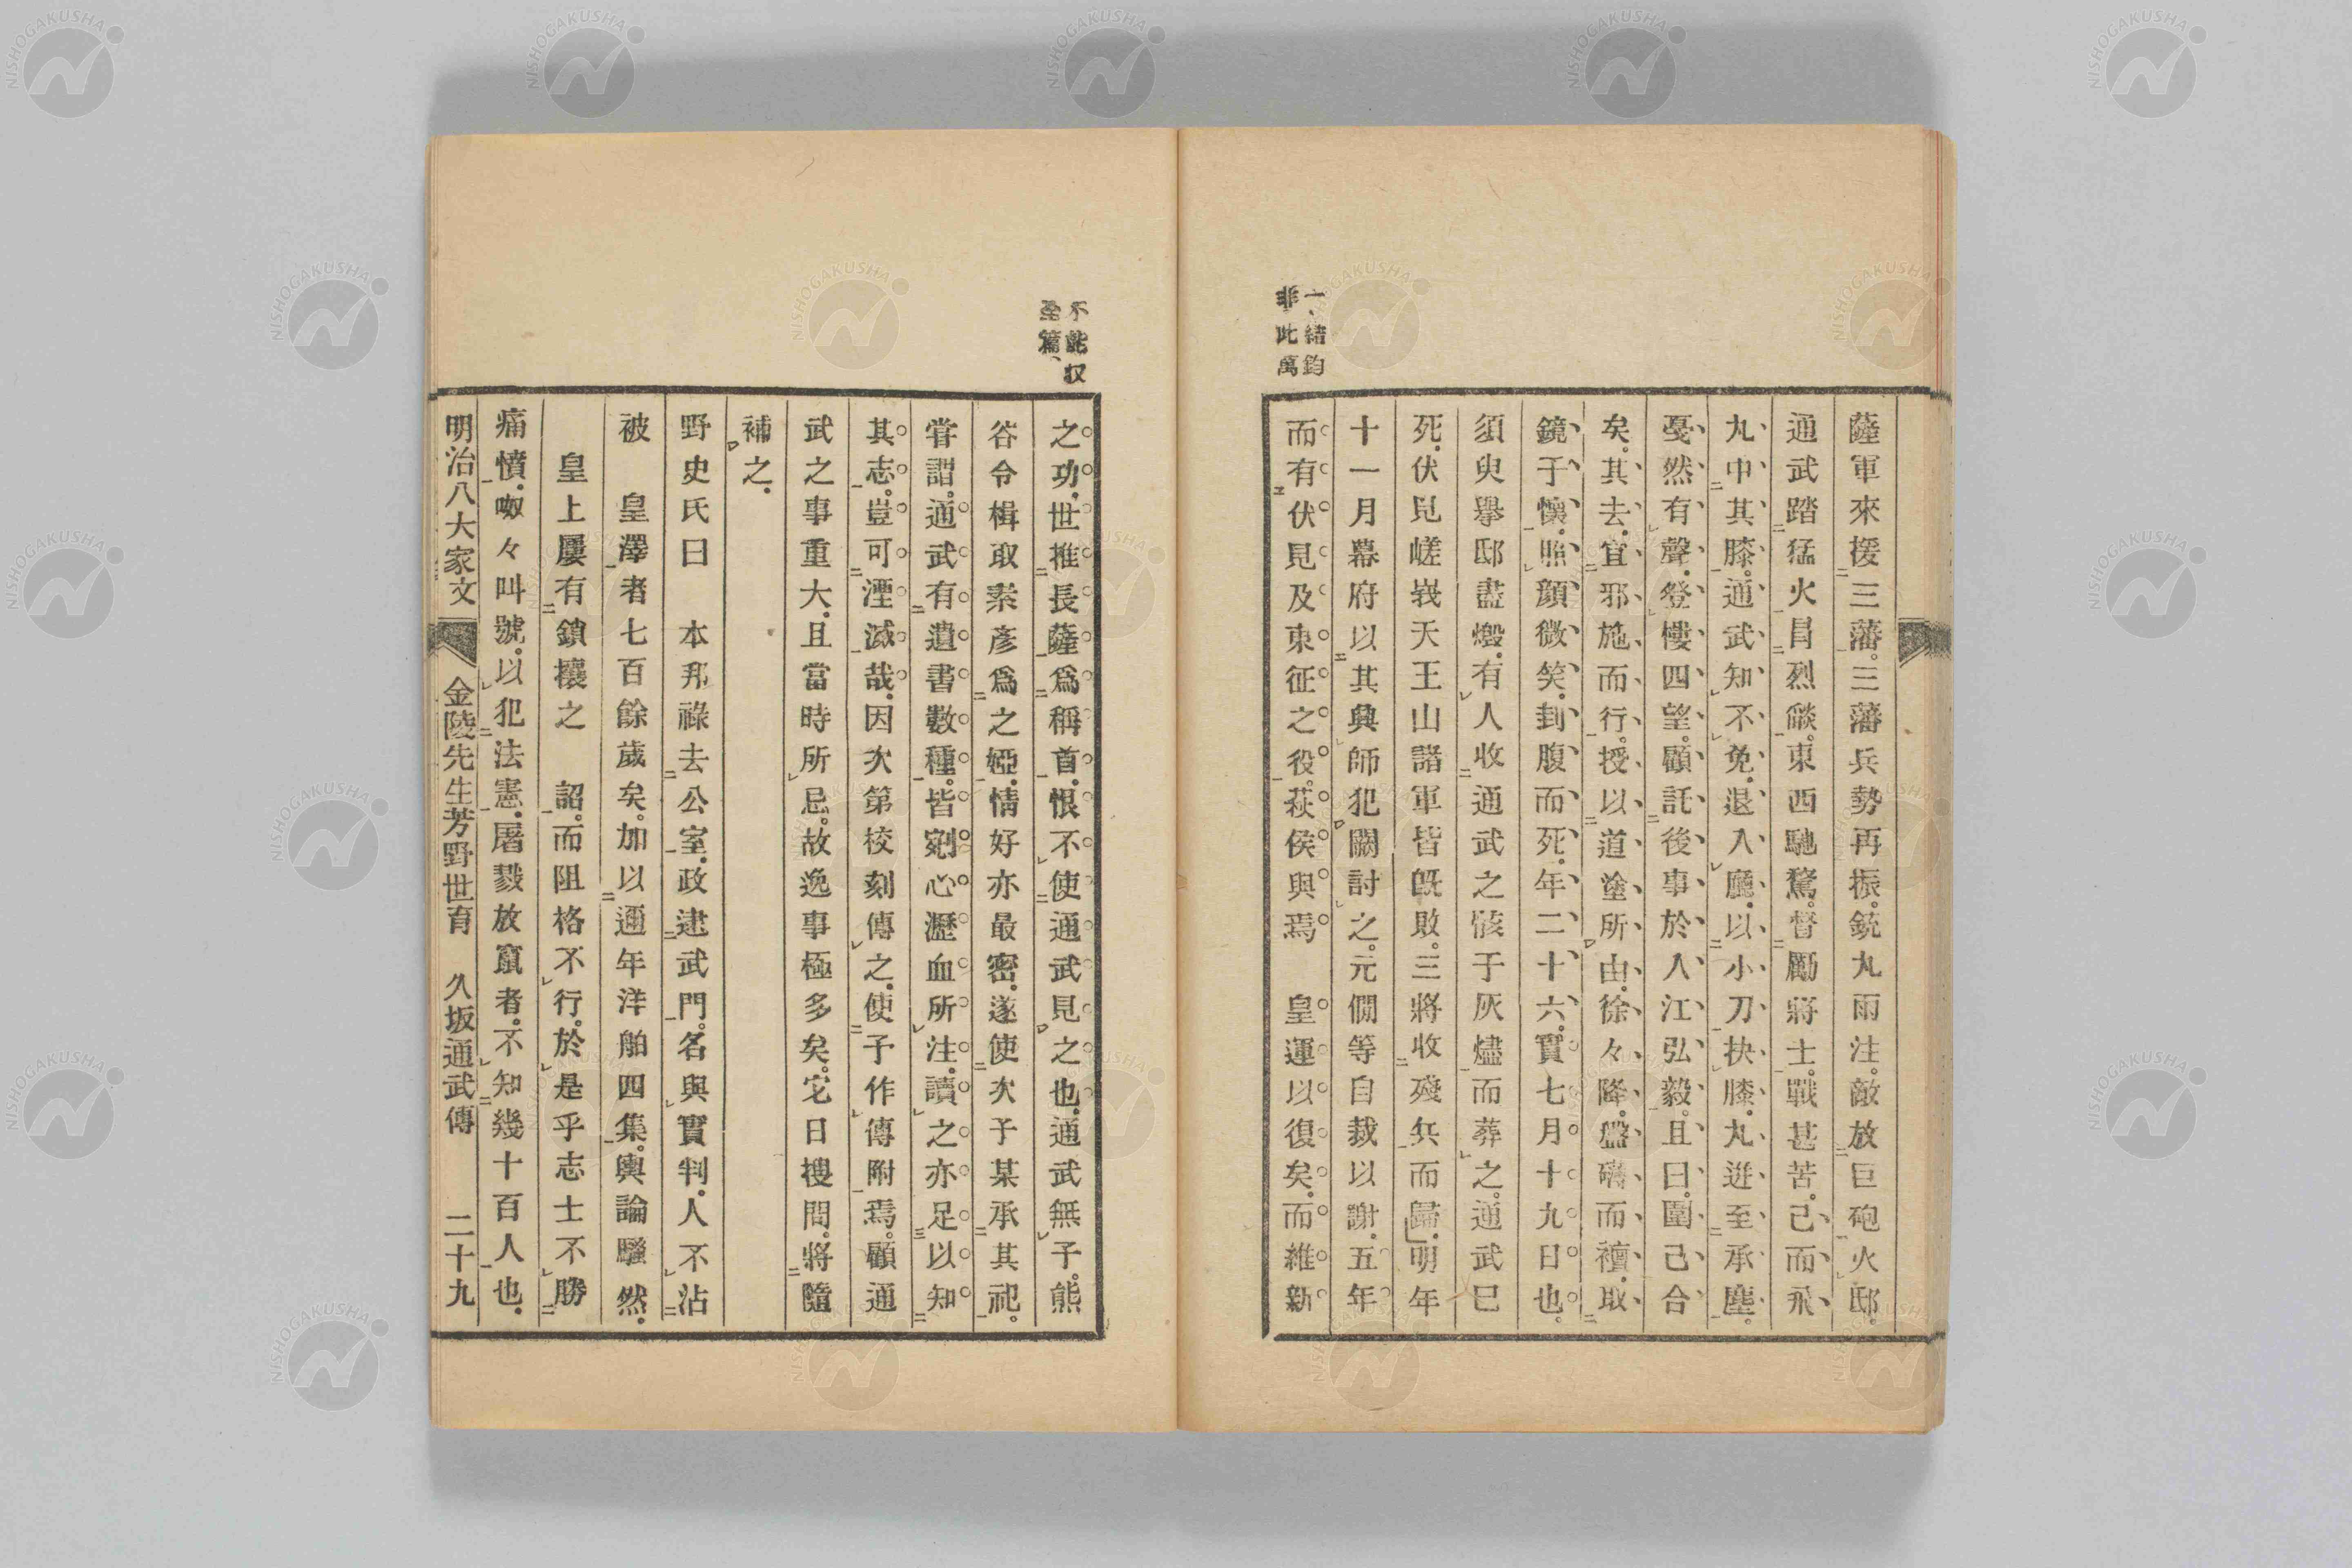 薩軍來援三藩。三藩兵勢再振。銃丸雨注。敵放巨砲火邸。
通武踏猛火冒烈燄。東西馳驁。督勵將士。戰甚苦。己而飛
丸中其膝。通武知不免。退入廳。以小刀抉膝。丸迸至承塵。
戞然有聲。登樓四望。顧託後事於入江弘毅。且曰。圍已合
矣。其去。宜邪施而行。授以道塗所由。徐々降。盤礴而襢。取
鏡于懷。照顏微笑。刲腹而死。年二十六。實七月十九日也。
須臾擧邸盡燬。有人收通武之骸于灰燼而葬之。通武已
死。伏見嵯峩天王山諸軍皆旣敗。三將收殘兵而歸。明年
十一月幕府以其興師犯闕討之。元僩等自裁以謝。五年
而有伏見及東征之役。萩侯與焉　皇運以復矣。而維新
一緖鈞
非此萬
不能収
全篇、
之功。世推長薩爲稱首。恨不使通武見之也。通武無子。熊
谷令楫取素彥爲之婭。情好亦最密。遂使次子某承其祀。
嘗謂。通武有遺書數種。皆剜心瀝血所注。讀之亦足以知
其志。豈可湮滅哉。因次第校刻傳之。使予作傳附焉。顧通
武之事重大。且當時所忌。故逸事極多矣。它日搜問。將隨
補之。
野史氏曰　本邦祿去公室。政逮武門。名與實判。人不沾
被　皇澤者七百餘歲矣。加以邇年洋舶四集。輿論騷然。
皇上屢有鎖攘之　詔。而阻格不行。於是乎志士不勝
痛憤。呶々叫號。以犯法憲。屠戮放竄者。不知幾十百人也。
明治八大家文　金陵先生芳野世育　久坂通武傳　二十九